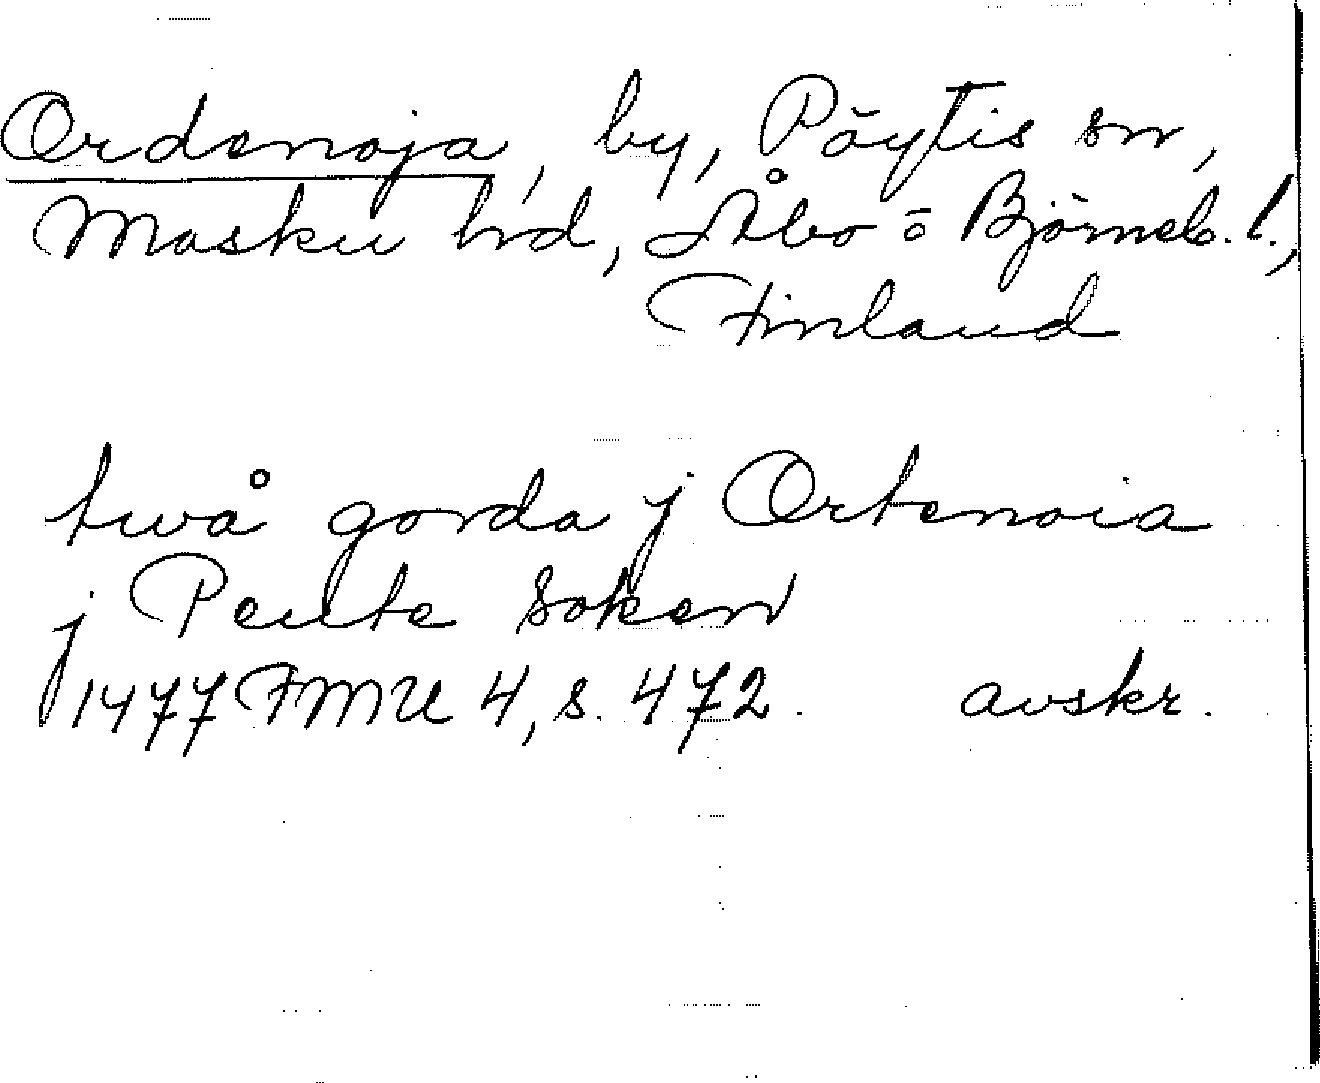 Ordenoja, by, Pöytis sn,
Masku hrd, Åbo o Björneb. l.,
Finland
twå gorda j Ortenoia
j Peute soken
1477 FMU 4, s. 472. avskr.